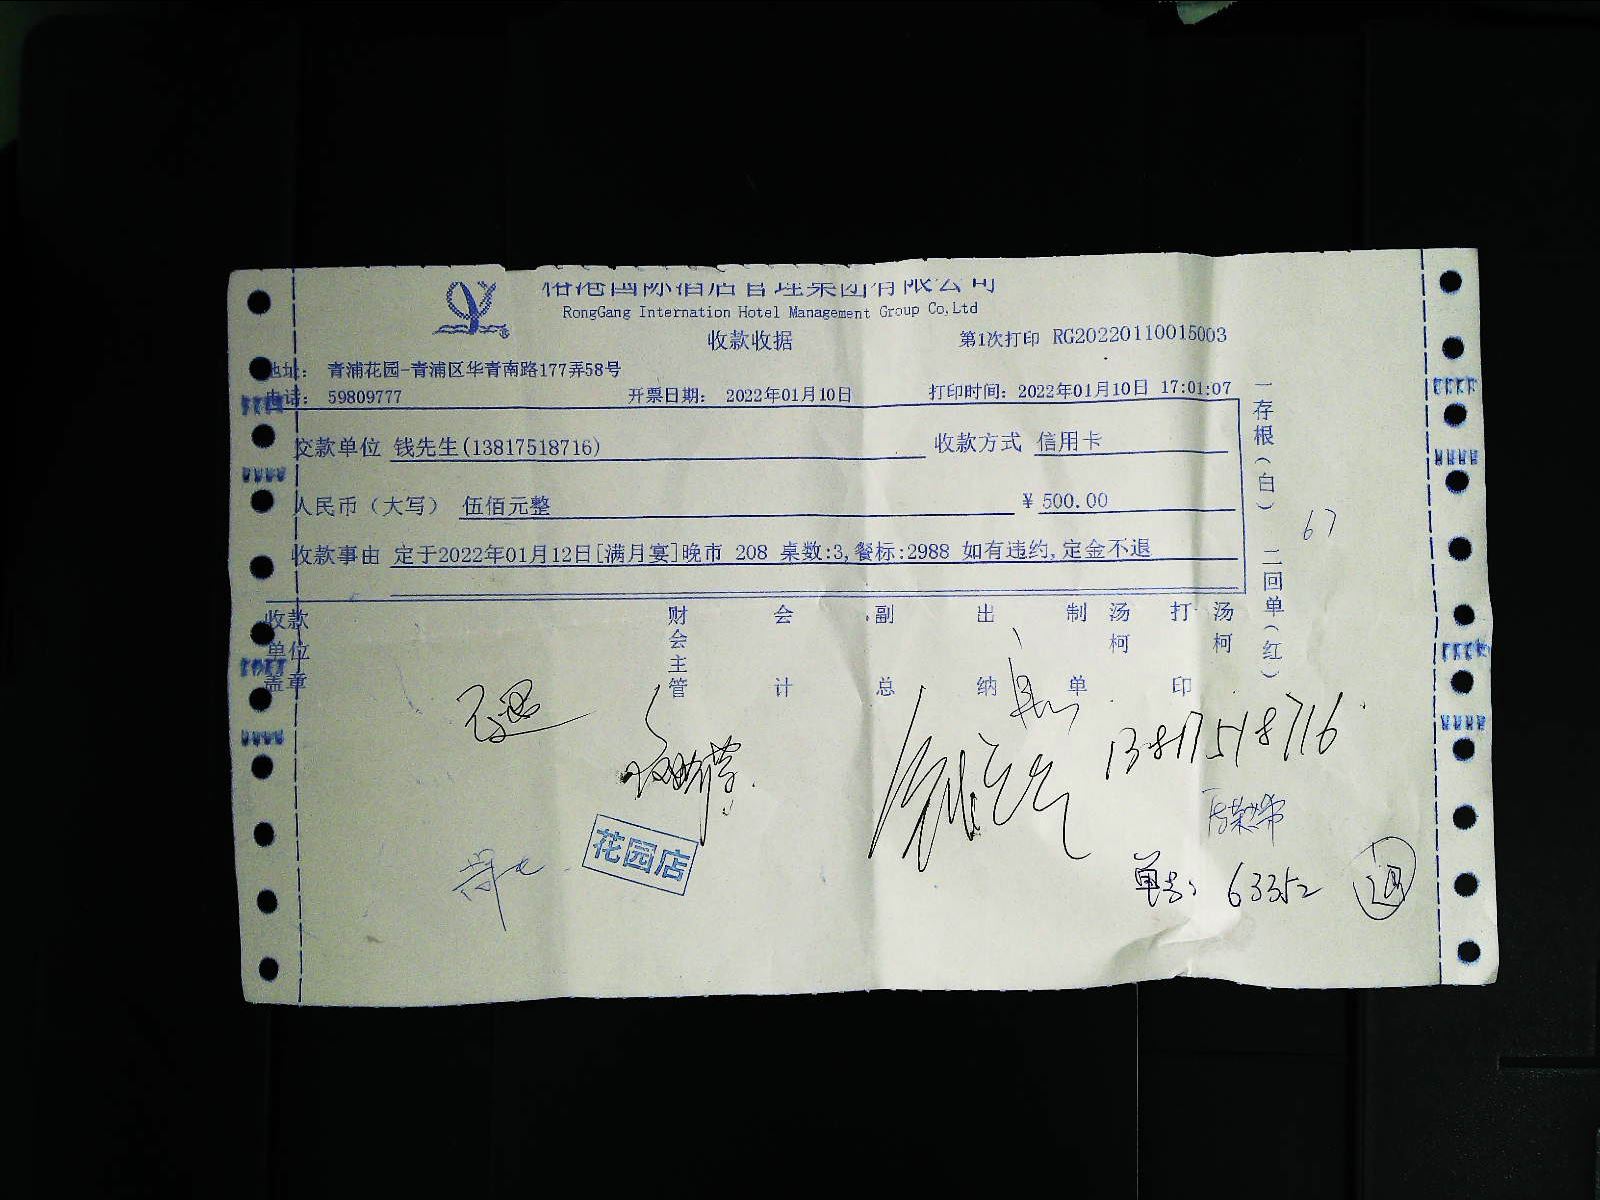 国际酒店管理集团有限公司
RongGang Internation Hotel Management Group Co,Ltd
收款收据
第1次打印 RG20220110015003
地址： 青浦花园-青浦区华青南路177弄58号
电话： 59809777 开票日期： 2022年01月10日 打印时间：2022年01月10日 17:01:07
交款单位 钱先生(13817518716) 收款方式 信用卡
人民币（大写） 伍佰元整 ￥500.00
收款事由 定于2022年01月12日[满月宴]晚市 208 桌数:3,餐标:2988 如有违约,定金不退
一存根（白） 二回单（红）
67
收款单位盖章 财会主管 会计 副总 出纳 制单 汤柯 打印 汤柯
13817518716
花园店
单号: 63352